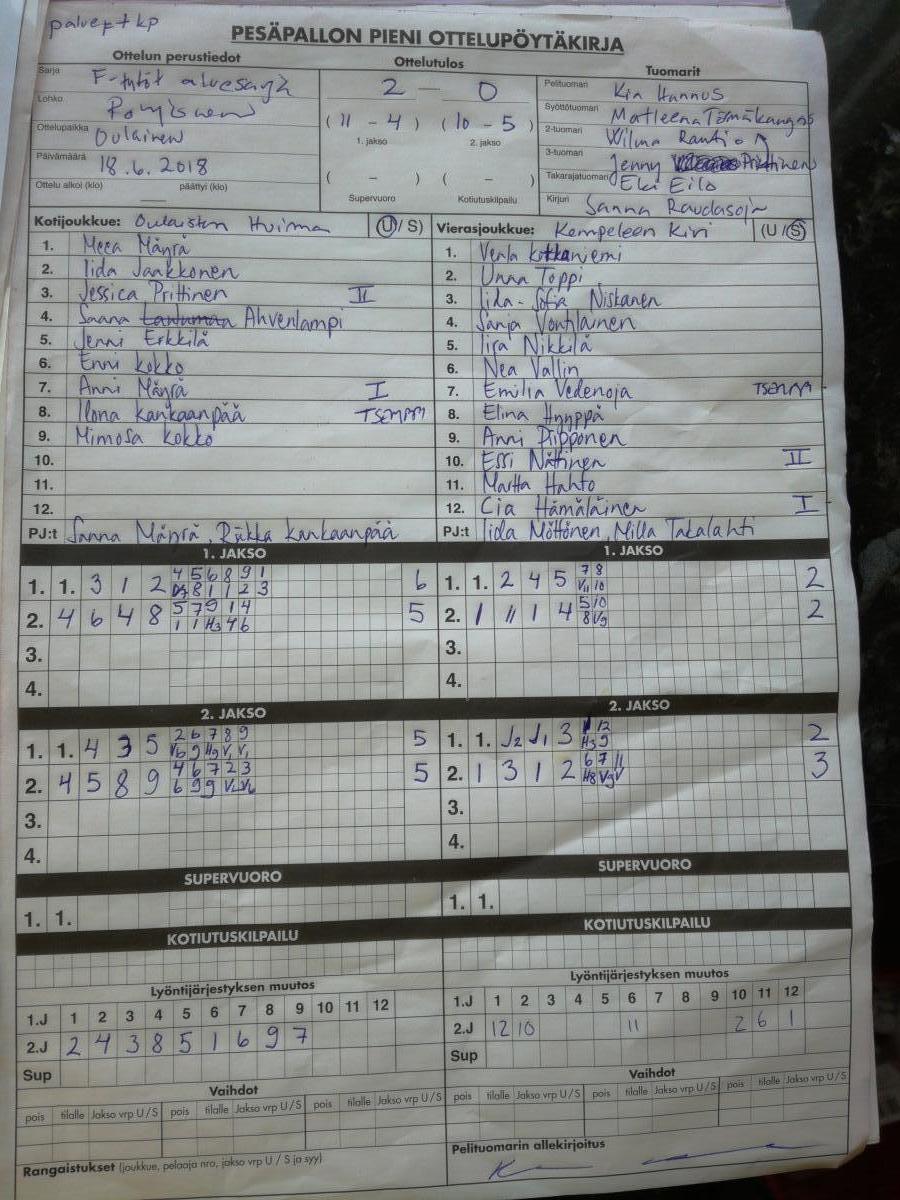 palvept kp
PESÄPALLON PIENI OTTELUPÖYTÄKIRJA
Ottelun perustiedot
Sarja F-tytöt aluesarja
Lohko Pohjoinen
Ottelupaikka Oulainen
Päivämäärä 18.6.2018
Ottelu alkoi (klo) päättyi (klo)
Ottelutulos
2 — 0
( 11 - 4 ) ( 10 - 5 )
1. jakso 2. jakso
( - ) ( - )
Supervuoro Kotiutuskilpailu
Tuomarit
Pelituomari Kia Hannus
Syöttötuomari Matleena Törmäkangas
2-tuomari Wilma Rantio
3-tuomari Jenny Prittinen
Takarajatuomari Elli Eilo
Kirjuri Sanna Raudasoja
Kotijoukkue: Oulaisten Huima (U/S)
1. Meea Mäyrä
2. Iida Jaakkonen
3. Jessica Prittinen II
4. Saana Ahvenlampi
5. Jenni Erkkilä
6. Enni Kokko
7. Anni Mäyrä I
8. Ilona Kankaanpää TSEMPPI
9. Mimosa Kokko
10.
11.
12.
PJ:t Sanna Mäyrä, Riikka Kankaanpää
Vierasjoukkue: Kempeleen Kiri (U/S)
1. Venla Kotkaniemi
2. Unna Toppi
3. Iida-Sofia Niskanen
4. Sanja Vontilainen
5. Iira Nikkilä
6. Nea Vallin
7. Emilia Vedenoja TSEMPPI
8. Elina Hyyppä
9. Anni Piipponen
10. Essi Nättinen II
11. Martta Hahto
12. Cia Hämäläinen I
PJ:t Iida Möttönen, Milla Takalahti
1. JAKSO
1. 1. 3 1 2 4 5 6 8 9 1 6
2. 4 6 4 8 5 7 9 1 4 5
3.
4.
1. JAKSO
1. 1. 2 4 5 7 8 2
2. 1 11 1 4 5 10 2
3.
4.
2. JAKSO
1. 1. 4 3 5 2 6 7 8 9 5
2. 4 5 8 9 4 6 7 2 3 5
3.
4.
2. JAKSO
1. 1. J2 J1 3 2
2. 1 3 1 2 6 7 11 3
3.
4.
SUPERVUORO
1. 1.
KOTIUTUSKILPAILU
SUPERVUORO
1. 1.
KOTIUTUSKILPAILU
Lyöntijärjestyksen muutos
1.J 1 2 3 4 5 6 7 8 9 10 11 12
2.J 2 4 3 8 5 1 6 9 7
Sup
Lyöntijärjestyksen muutos
1.J 1 2 3 4 5 6 7 8 9 10 11 12
2.J 12 10 11 2 6 1
Sup
Vaihdot
pois tilalle Jakso vrp U/S pois tilalle Jakso vrp U/S pois tilalle Jakso vrp U/S
Vaihdot
pois tilalle Jakso vrp U/S pois tilalle Jakso vrp U/S pois tilalle Jakso vrp U/S
Rangaistukset (joukkue, pelaaja nro, jakso vrp U / S ja syy)
Pelituomarin allekirjoitus